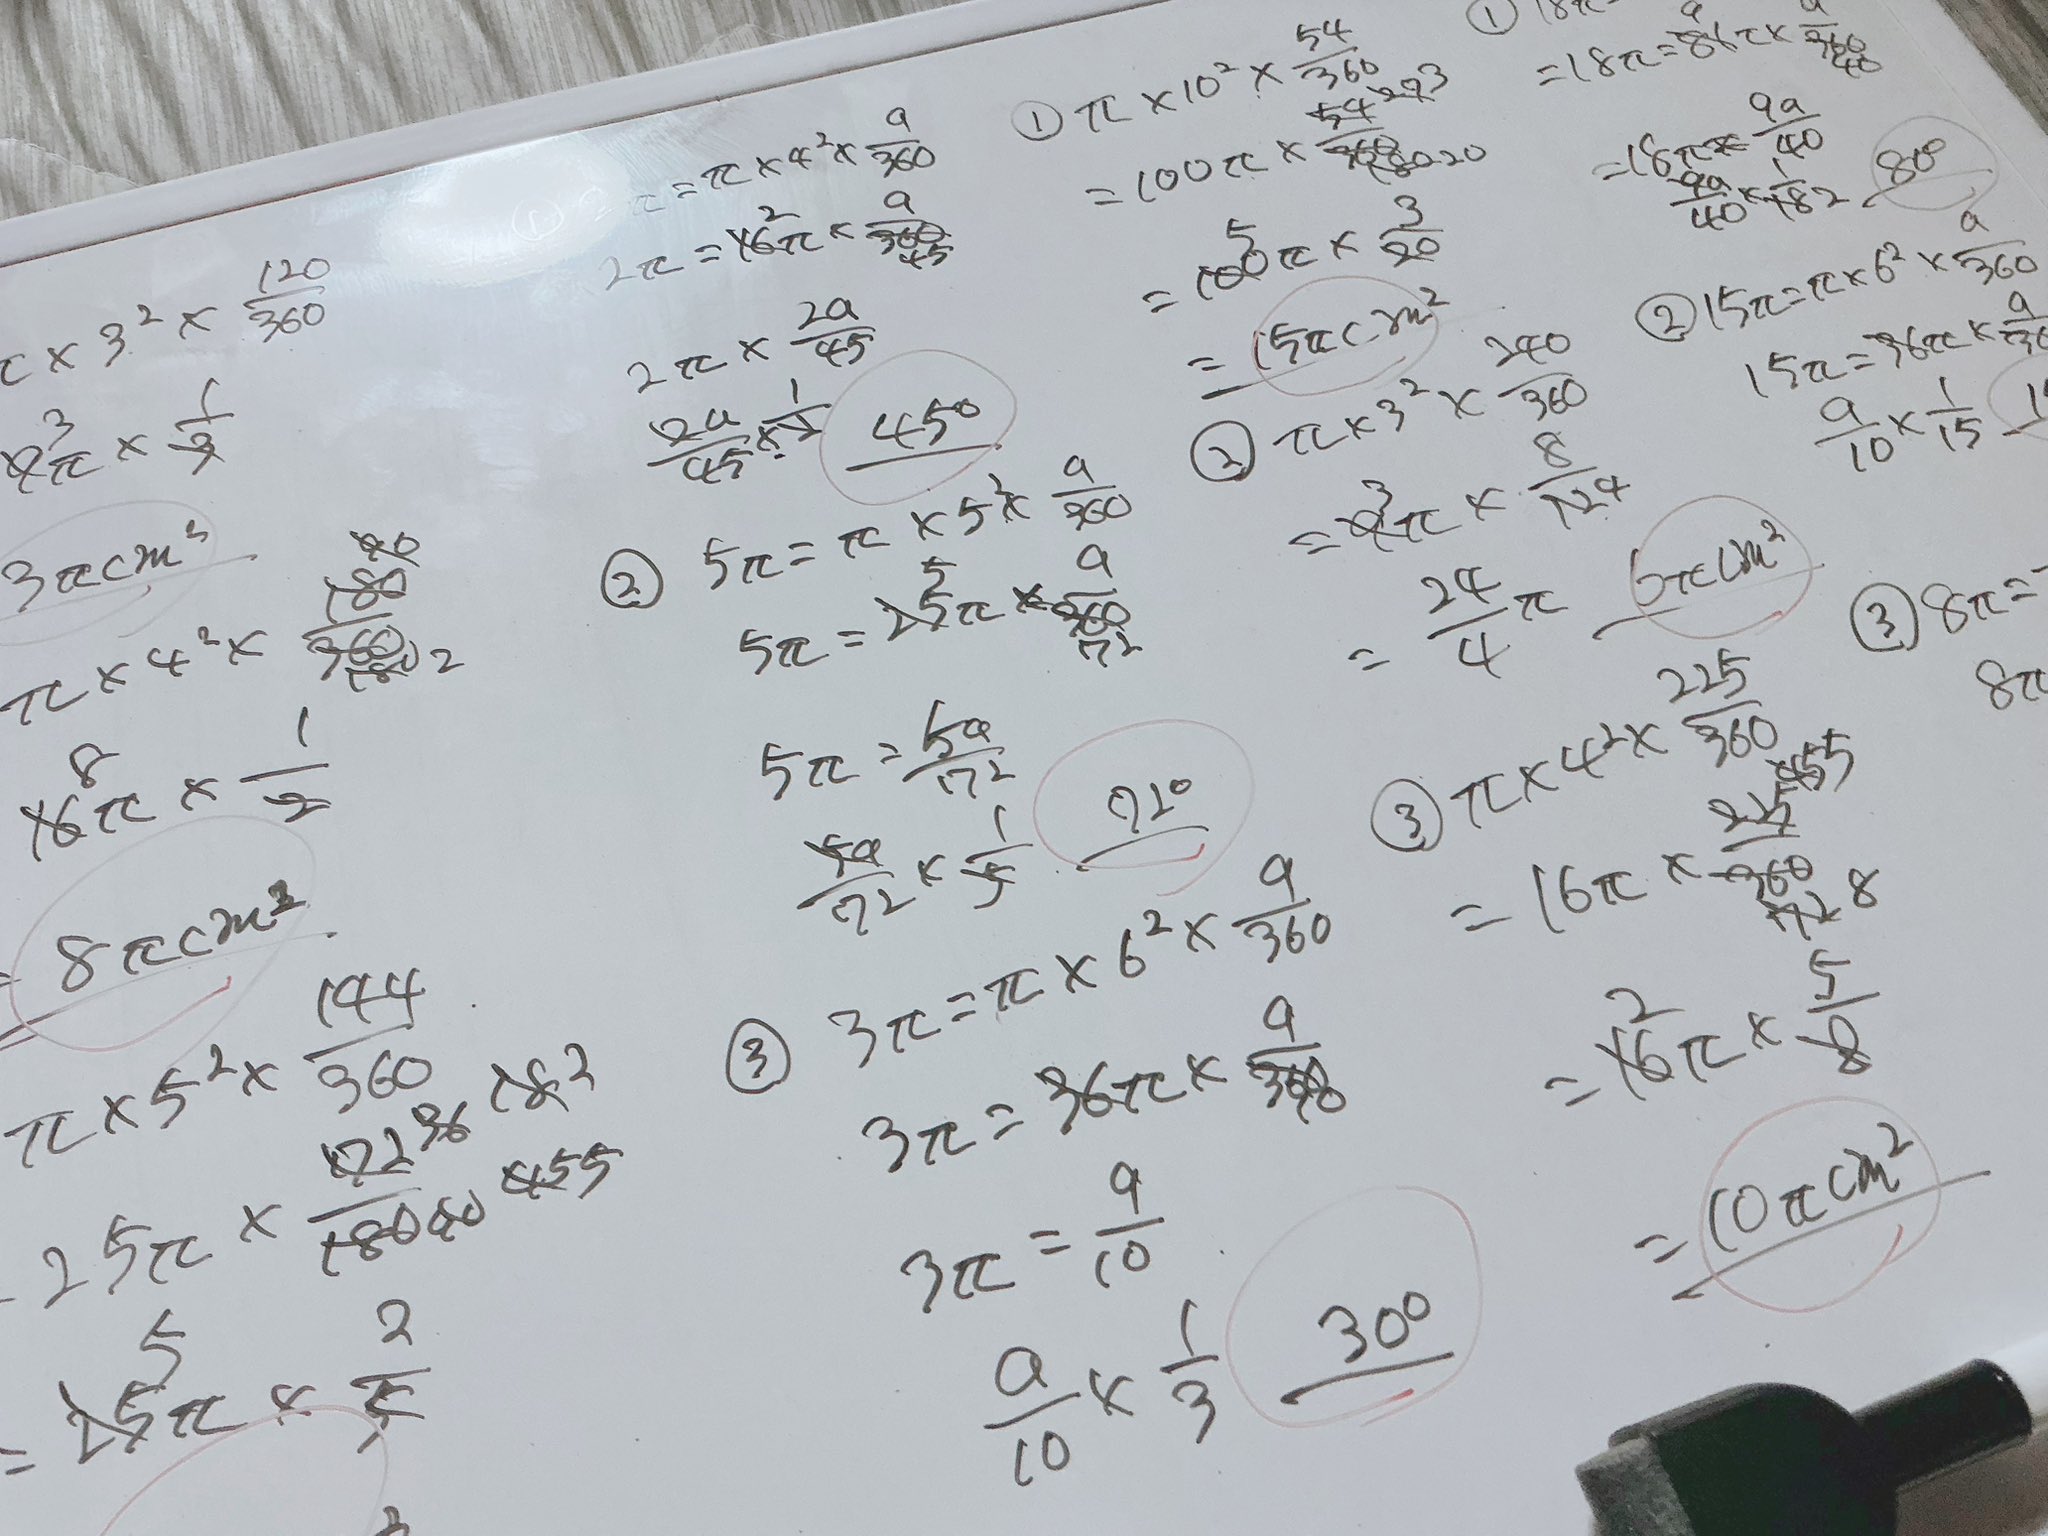 π×3²×120/360
3
9π×1/3
3πcm²
90
π×4²×180/360
180 2
8
16π×1/2
= 8πcm²
π×5²×144/360
72 36 18 2
25π×72/180 90 45 5
5
= 25π×2/5
① 2π=π×4²×a/360
2
2π=16π×a/360
45
2π×2a/45
2a/45×1/2 45°
② 5π=π×5²×a/360
5
5π=25π×a/360
72
5π=5a/72
5a/72×1/5 72°
③ 3π=π×6²×a/360
3π=36π×a/360
10
3π=a/10
a/10×1/3 30°
① π×10²×54/360
=100π×54/360
27 3
180 20
5
=100π×3/20
=15πcm²
② π×3²×240/360
3
=9π×8/12 4
=24/4π 6πcm²
③ π×4²×225/360
45 5
=16π×225/360
72 8
2
=16π×5/8
=10πcm²
① 18π=
9
=18π=81π×a/360
40
=18π=9a/40
9a/40×1/18 2 80°
② 15π=π×6²×a/360
15π=36π×a/
a/10×1/15
③ 8π=
8π